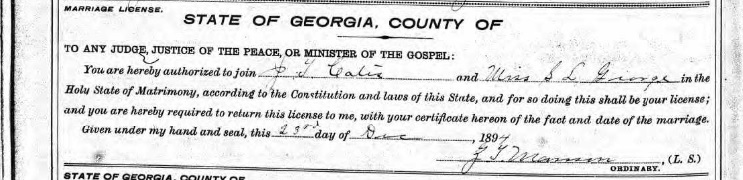 MARRIAGE LICENSE.
STATE OF GEORGIA, COUNTY OF
TO ANY JUDGE, JUSTICE OF THE PEACE, OR MINISTER OF THE GOSPEL:
You are hereby authorized to join J. T. and Miss S L George in the
Holy State of Matrimony, according to the Constitution and laws of this State, and for so doing this shall be your license;
and you are hereby required to return this license to me, with your certificate hereon of the fact and date of the marriage.
Given under my hand and seal, this 23rd day of Dec, 1894
(L. S.)
ORDINARY.
STATE OF GEORGIA, COUNTY OF